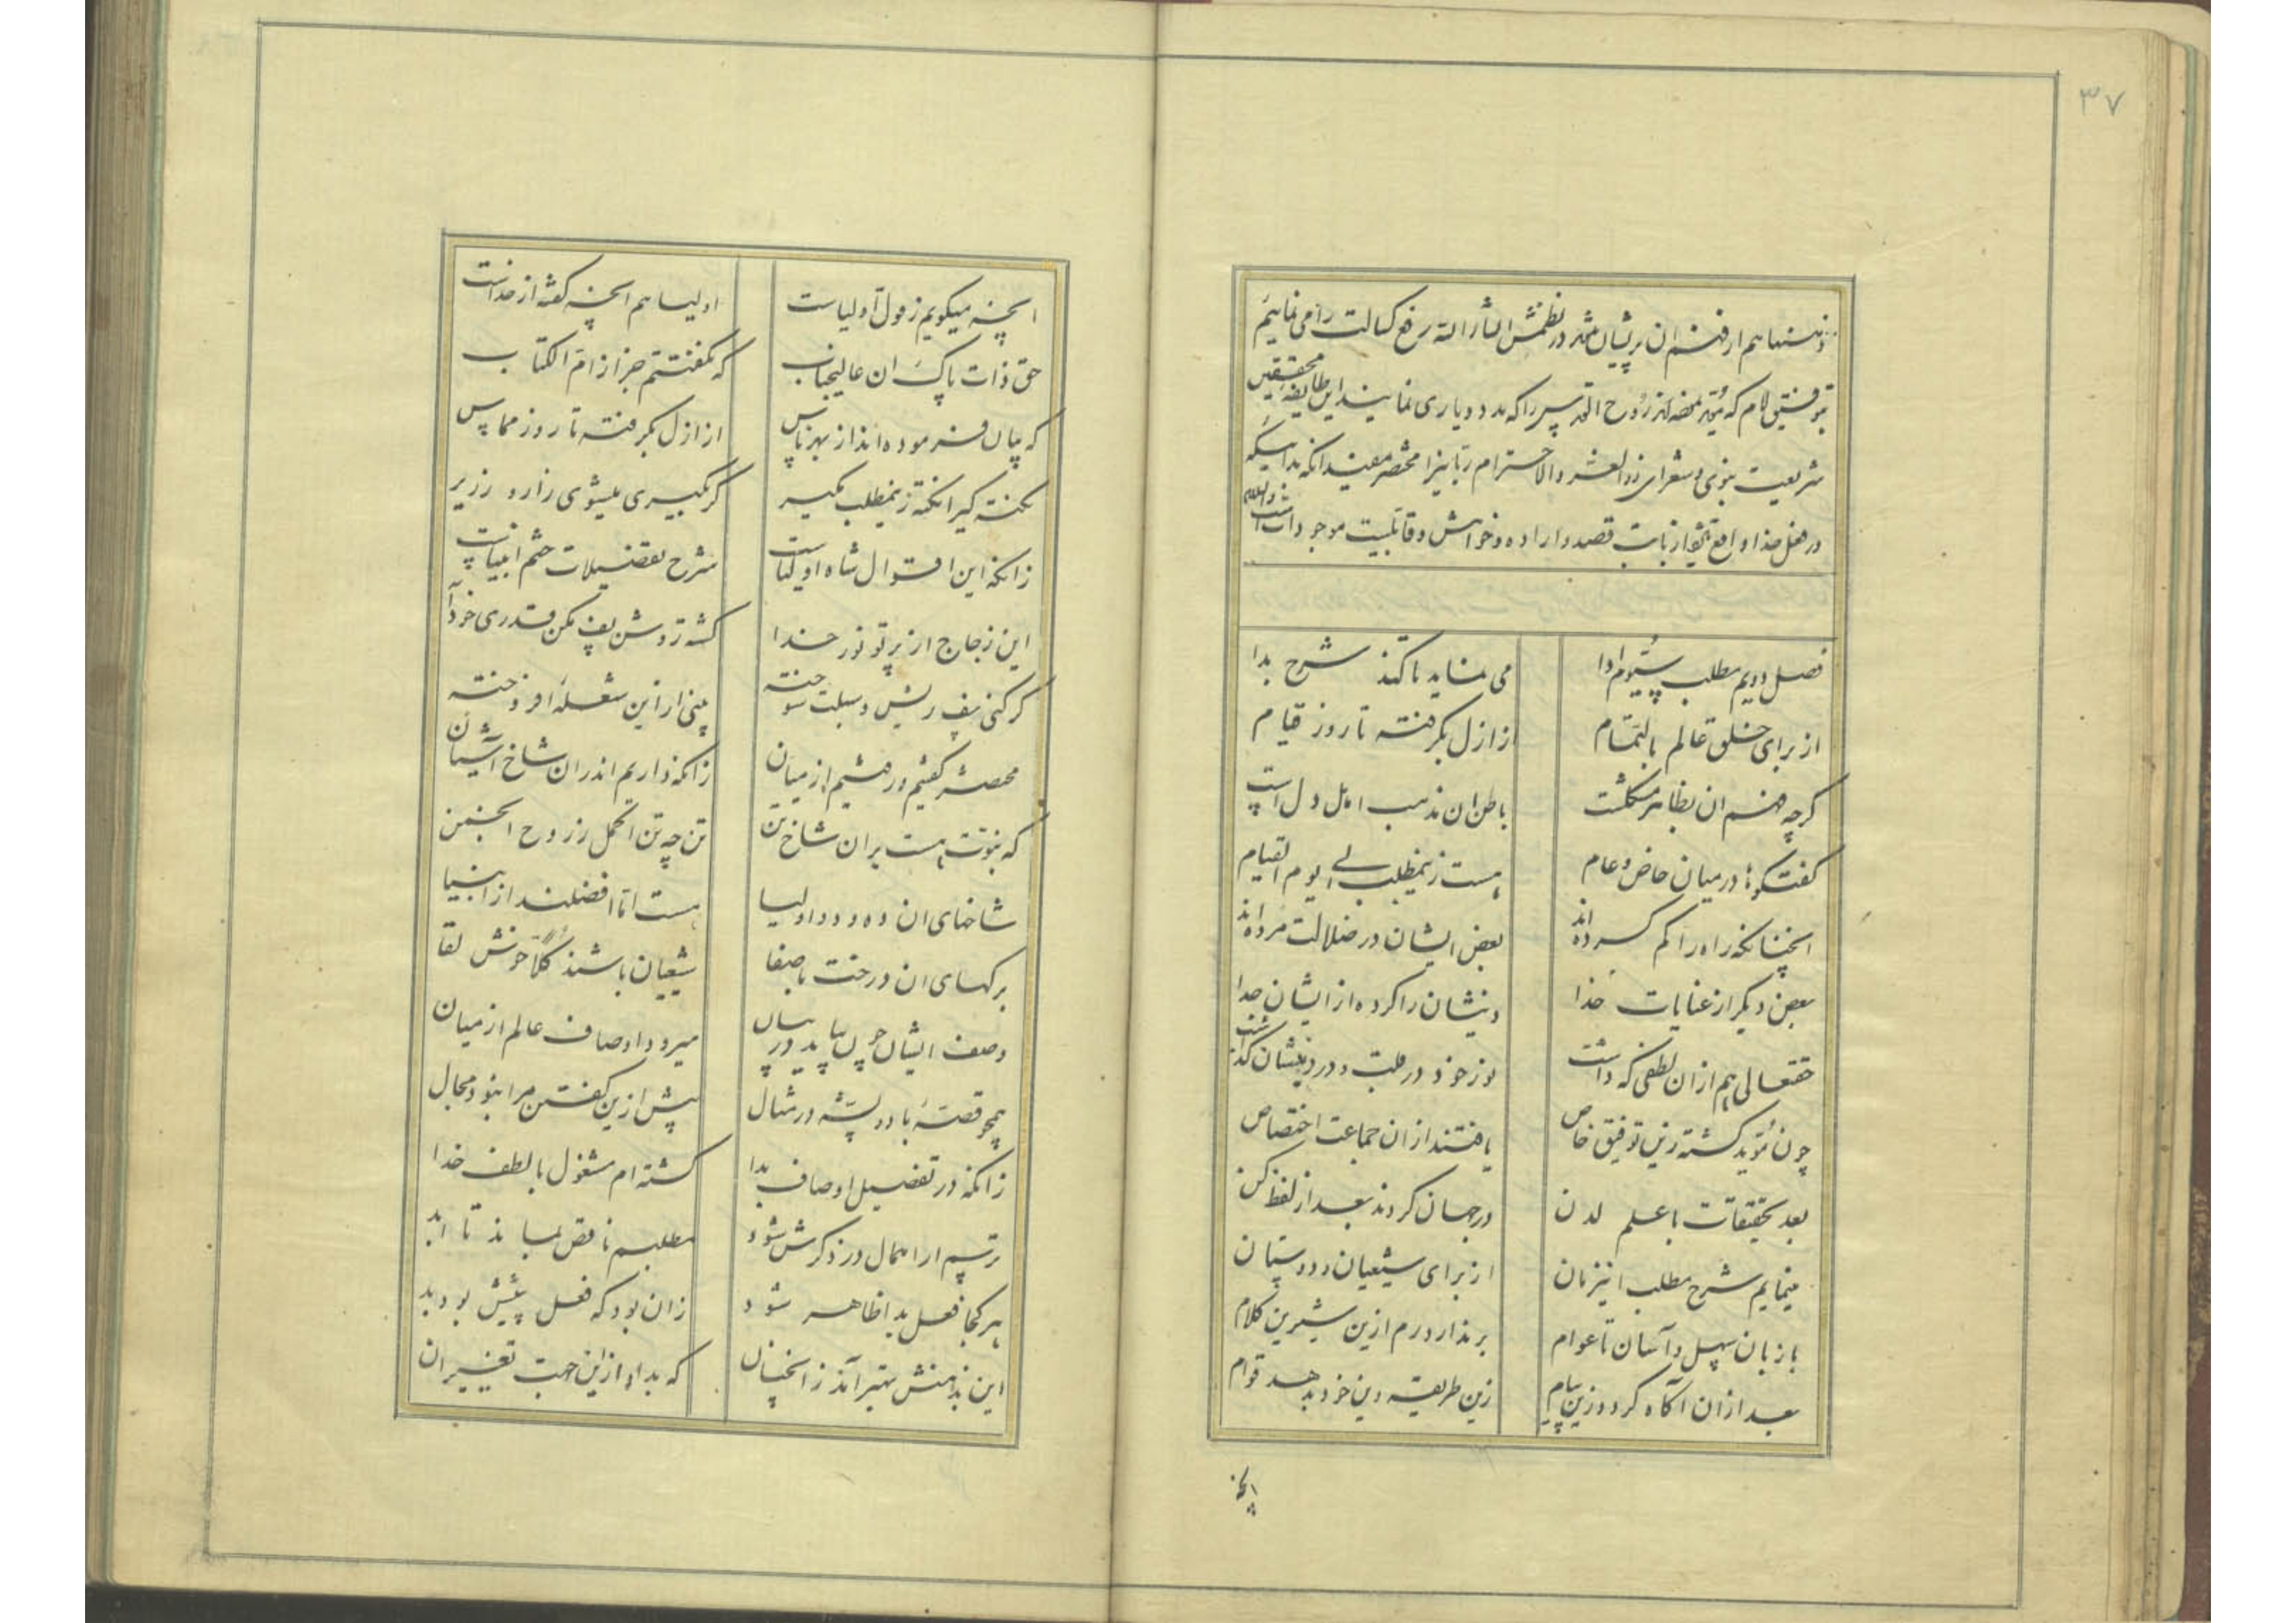 ۳۷
ذهنها هم از فهم ان پریشان شد در نظمش انشاءالله رفع کسالت را می نماییم
توفیق کلام که مؤید روح القدس را که مدد و یاری نمایند این طایفه محققین
شریعت نبوی و شعرای ذو العز والاحترام ربانیرا مختصر مفید انکه بدانیکه
در فعل خدا واقع از بابت قصد و اراده و خواهش و قابلیت موجودات است والسلام
فصل دویم مطلب سیّوم ادا می نماید تا کند شرح بدا
از برای خلق عالم بالتمام از ازل بگرفته تا روز قیام
گرچه فهم ان بظاهر مشکلست باطن ان مذهب اهل دل است
گفتگوها در میان خاص و عام هست زینمطلب الی یوم القیام
انچنانکه راه را گم کرده اند بعض ایشان در ضلالت مرده اند
بعض دیگر از عنایات خدا دینشان را کرده از ایشان جدا
حقتعالی هم از ان لطفی که داشت نور خود در قلب و در دینشان گذاشت
چون مؤید گشته زین توفیق خاص یافتند از ان جماعت اختصاص
بعد تحقیقات با علم لدن در جهان کردند بعد از لفظ کن
مینمایم شرح مطلب اینزمان از برای شیعیان و دوستان
با زبان سهل و آسان تا عوام بر ندارد رم ازین شیرین کلام
بعد از ان آگاه گردد زین پیام زین طریقه دین خود بدهد قوام
انچه
انچه میگویم ز قول اولیاست اولیا هم انچه گفته از خداست
حق ذات پاک ان عالیجناب که نگفتتم جز از ام الکتاب
که بیان فرموده اند از بهر ناس از ازل بگرفته تا روز مماس
نکته گیرا نکته زینمطلب مگیر گر بگیری میشوی زار و زریر
زانکه این اقوال شاه اولیاست شرح تفضیلات ختم انبیاست
این زجاج از پرتو نور خدا گشته روشن پف مکن قدری خود آ
گر کنی پف ریش و سبلت سوخته بینی ار از این شعله افروخته
مختصر گفتیم و رفتیم از میان زانکه داریم اندران شاخ آشیان
که نبوت هست بر ان شاخ تن تن چه تن اکمل ز روح انجمن
شاخهای ان ده و دو اولیا هست امّا افضلند از انبیا
برگهای ان درخت با صفا شیعیان باشند کلا خوش لقا
وصف ایشان چون بیاید در بیان میرود اوصاف عالم از میان
همچو قصهٔ باد و پشه در مثال بیش ازین گفتن مرا نبود مجال
زانکه در تفصیل اوصاف بدا گشته ام مشغول با لطف خدا
ترسم ار اهمال در ذکرش شود مطلبم ناقص بماند تا ابد
هر کجا فعل بدا ظاهر شود زان بود که فعل پیش بود بد
این بدامنش بهتر آمد زانچنان که بد او از این جهت تغییر ان